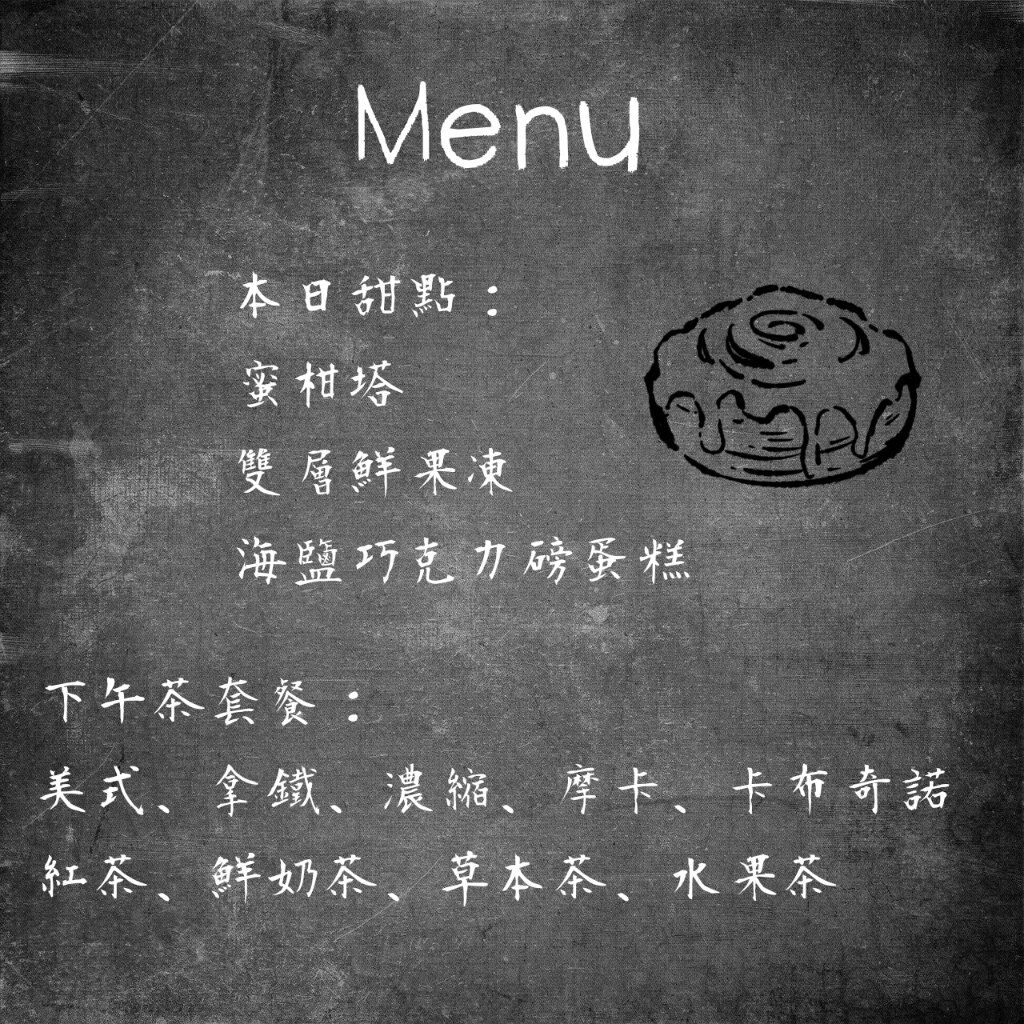 Menu
本日甜點：
蜜柑塔
雙層鮮果凍
海鹽巧克力磅蛋糕
下午茶套餐：
美式、拿鐵、濃縮、摩卡、卡布奇諾
紅茶、鮮奶茶、草本茶、水果茶